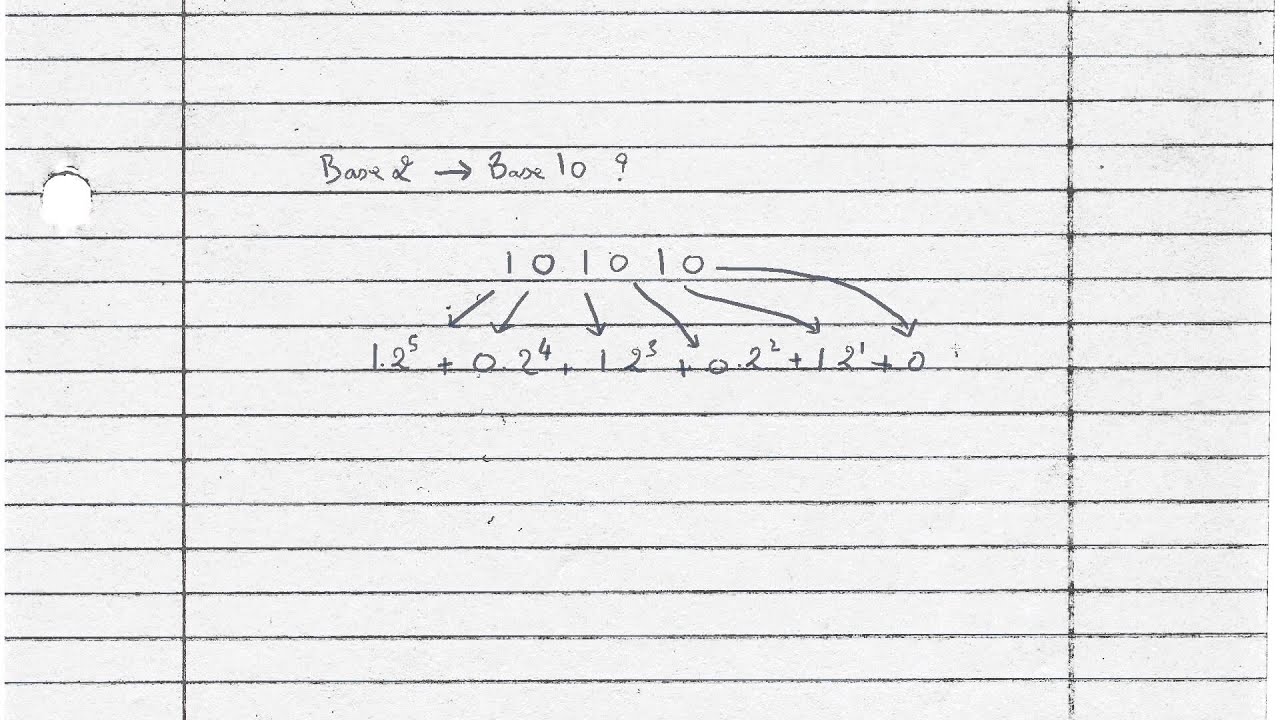 Base 2 → Base 10 ?
1 0 1 0 1 0
1.2⁵ + 0.2⁴ + 1 2³ + 0.2² + 1 2¹ + 0